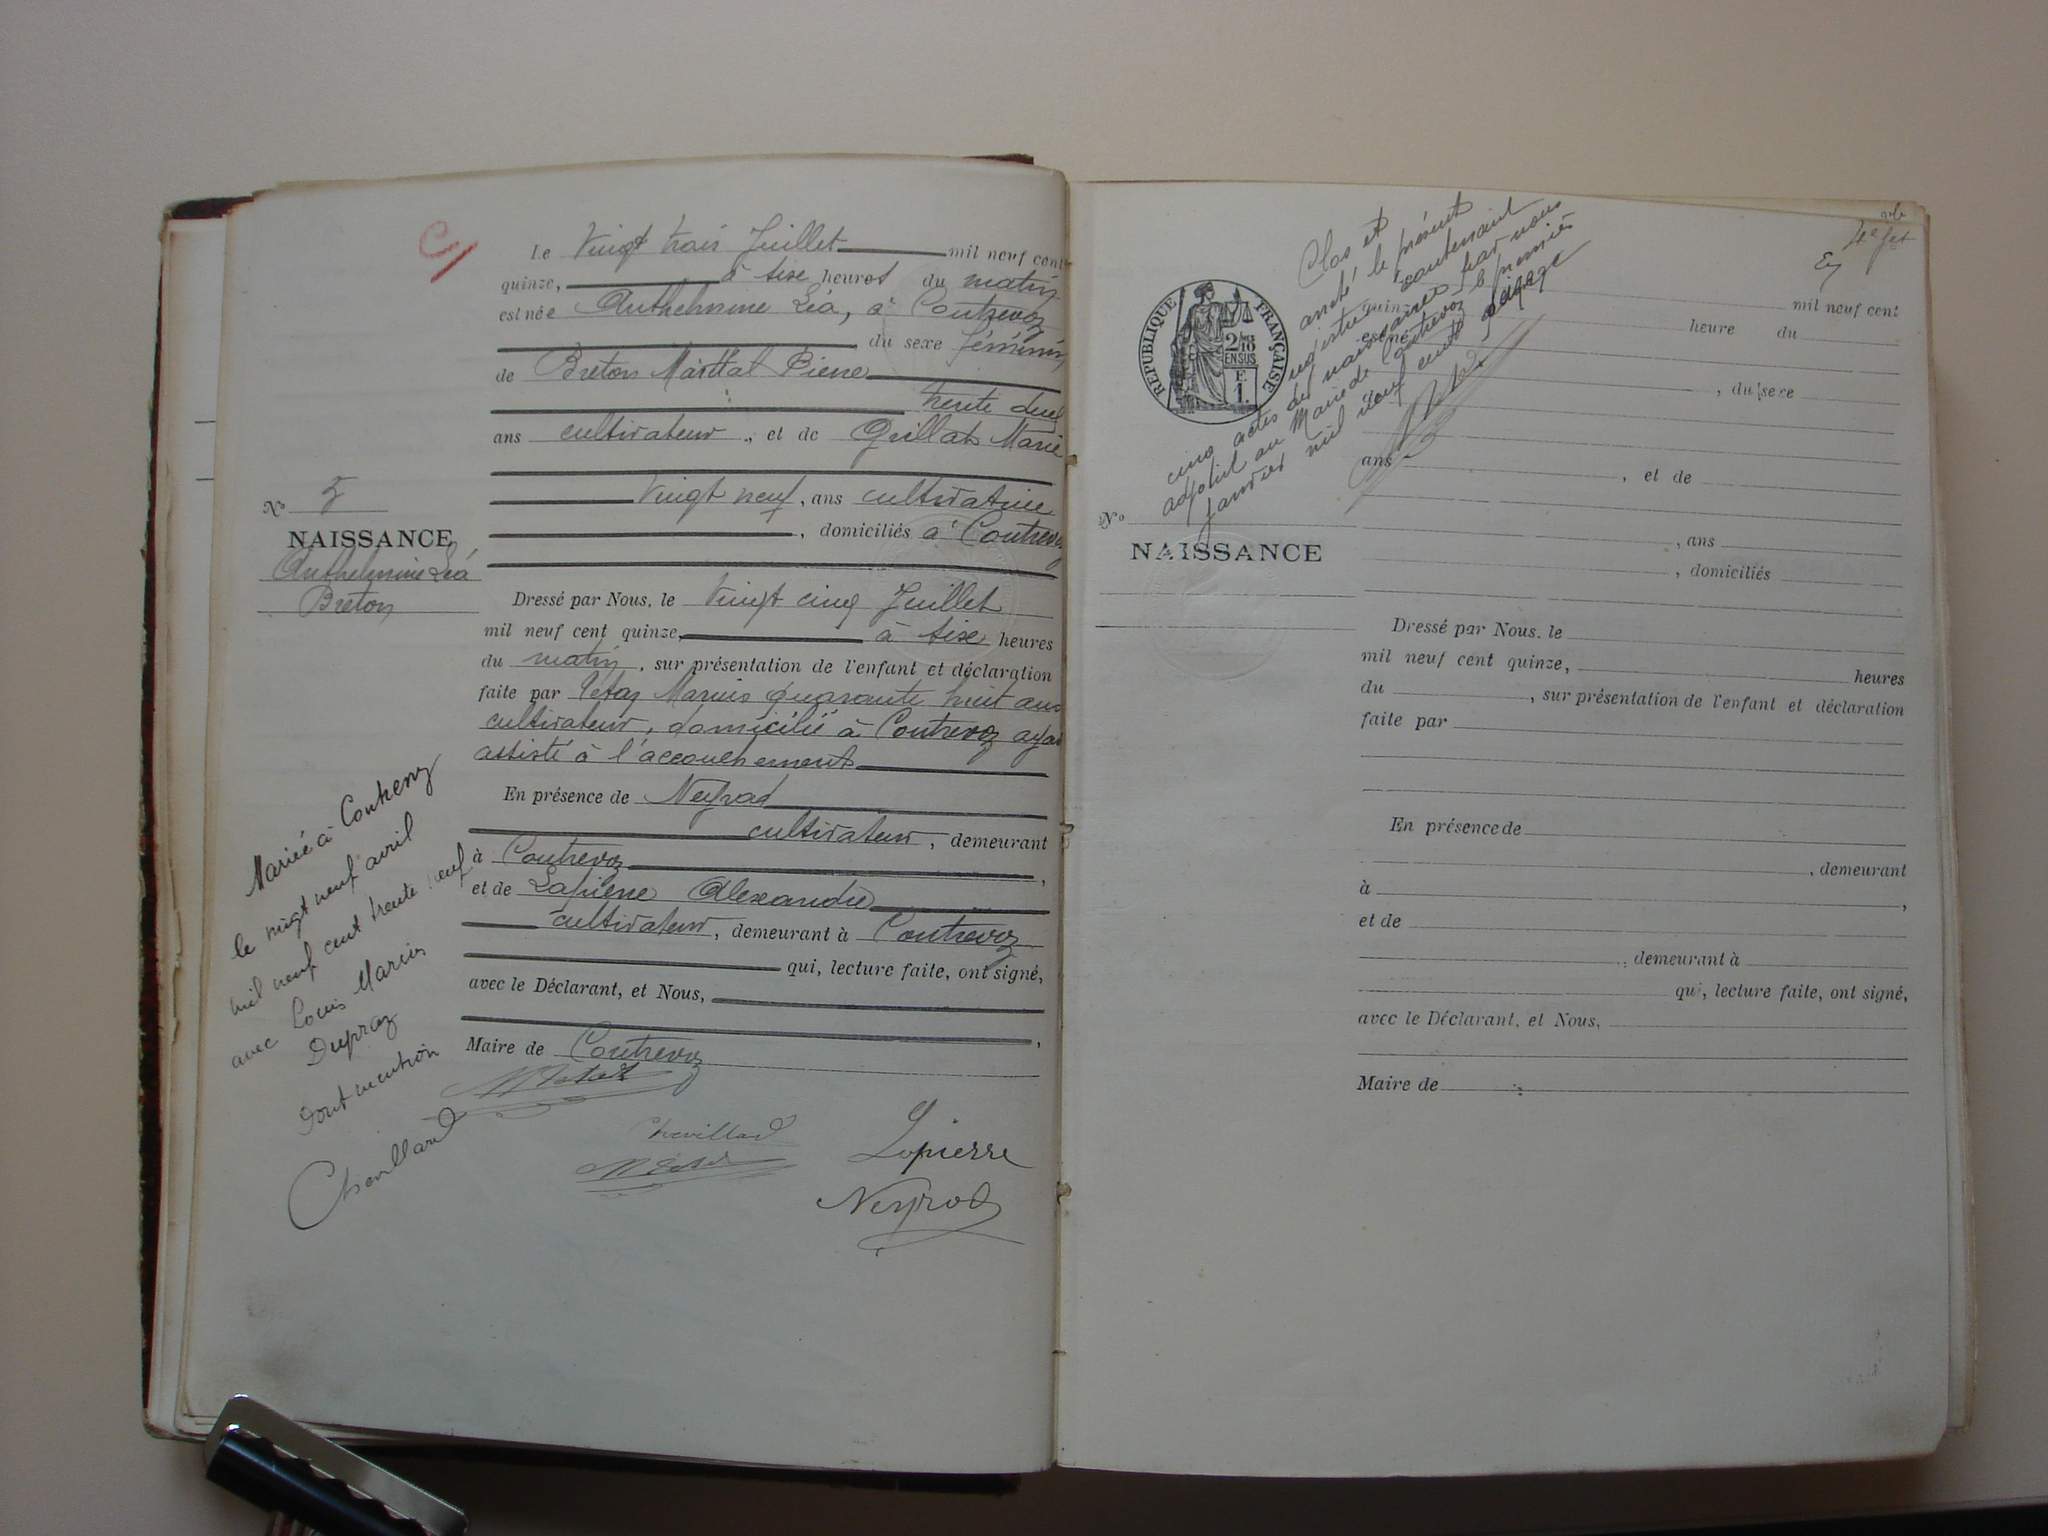 Le Vingt trois Juillet mil neuf cent
quinze, à sixe heures du matin
est née Anthelmine Léa, à Contrevoz
du sexe féminin
de Breton Martial Pierre
trente deux
ans cultivateur, et de Grillat Marie
Vingt neuf, ans cultivatrice
, domiciliés à Contrevoz
No 5
NAISSANCE
Anthelmine Léa
Breton
Dressé par Nous, le Vingt cinq Juillet
mil neuf cent quinze, à sixe heures
du matin, sur présentation de l'enfant et déclaration
faite par Marius quarante huit ans
cultivateur, domicilié à Contrevoz ayant
assisté à l'accouchement
En présence de Neyrod
cultivateur, demeurant
à Contrevoz,
et de Lapierre Alexandre
cultivateur, demeurant à Contrevoz
qui, lecture faite, ont signé,
avec le Déclarant, et Nous,
,
Maire de Contrevoz
Mariée à Contrevoz
le vingt neuf avril
mil neuf cent trente neuf
avec Louis Marius
Dupraz
Dont mention
Chevillard
Chevillard
Lapierre
Neyrod
REPUBLIQUE FRANÇAISE
2/10
EN SUS
E
1.
Clos et
arrêté le présent
registre contenant
cinq actes de naissances par nous
adjoint au Maire de Contrevoz le premier
Janvier mil neuf cent seize
mil neuf cent
quinze, heure du
est né
, du sexe
de
ans , et de
, ans
, domiciliés
No
NAISSANCE
Dressé par Nous, le
mil neuf cent quinze, heures
du , sur présentation de l'enfant et déclaration
faite par
En présence de
, demeurant
à ,
et de
, demeurant à
qui, lecture faite, ont signé,
avec le Déclarant, et Nous,
Maire de